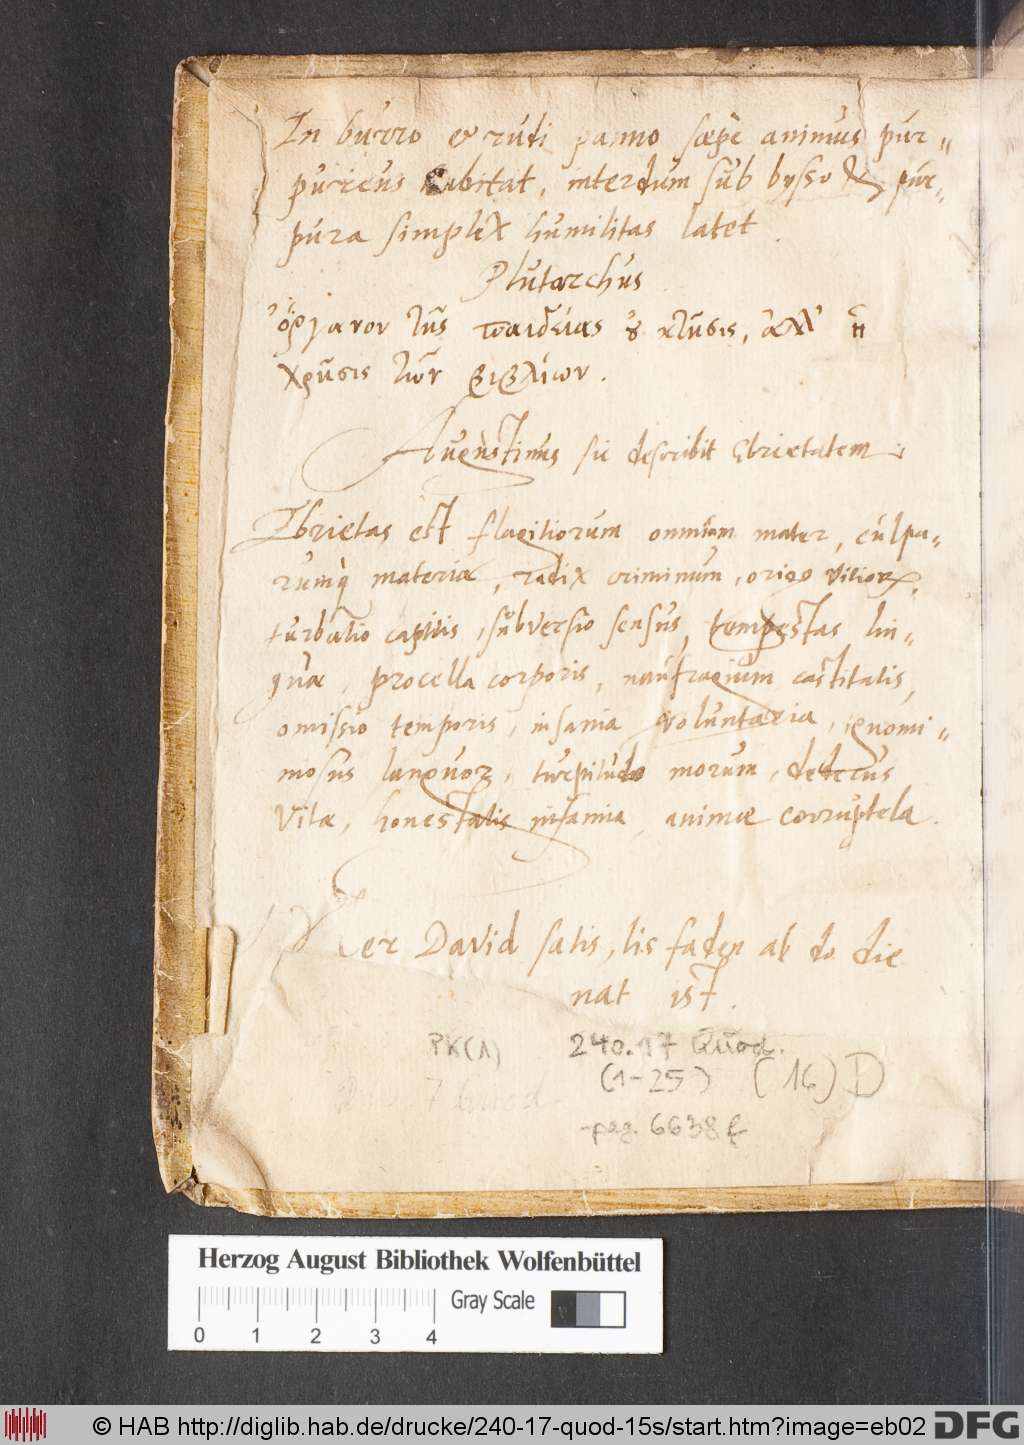 In burro et rudi panno sæpe animus pur=
pureus habitat, interdum sub bysso & pur=
pura simplex humilitas latet.
Plutarchus
ὄργανον τῆς παιδείας ȣ κτῆσις, ἀλλ' ἡ
χρῆσις τῶν βιβλίων.
Augustinus sic describit Ebrietatem
Ebrietas est flagitiorum omnium mater, culpa=
rumq materia, radix criminum, origo vitiorꝝ,
turbatio capitis, subversio sensus, tempestas lin=
guæ, procella corporis, naufragium castitatis,
omissio temporis, insania voluntaria, ignomi=
niosus languor, turpitudo morum, dedecus
Vitæ, honestatis infamia, animæ corruptela.
David satis, lis faden ab do die
nat ist.
PK(1) 240.17 Quod.
(1-25) (16) D
-pag. 6638 f
Herzog August Bibliothek Wolfenbüttel
Gray Scale
0 1 2 3 4
© HAB http://diglib.hab.de/drucke/240-17-quod-15s/start.htm?image=eb02 DFG